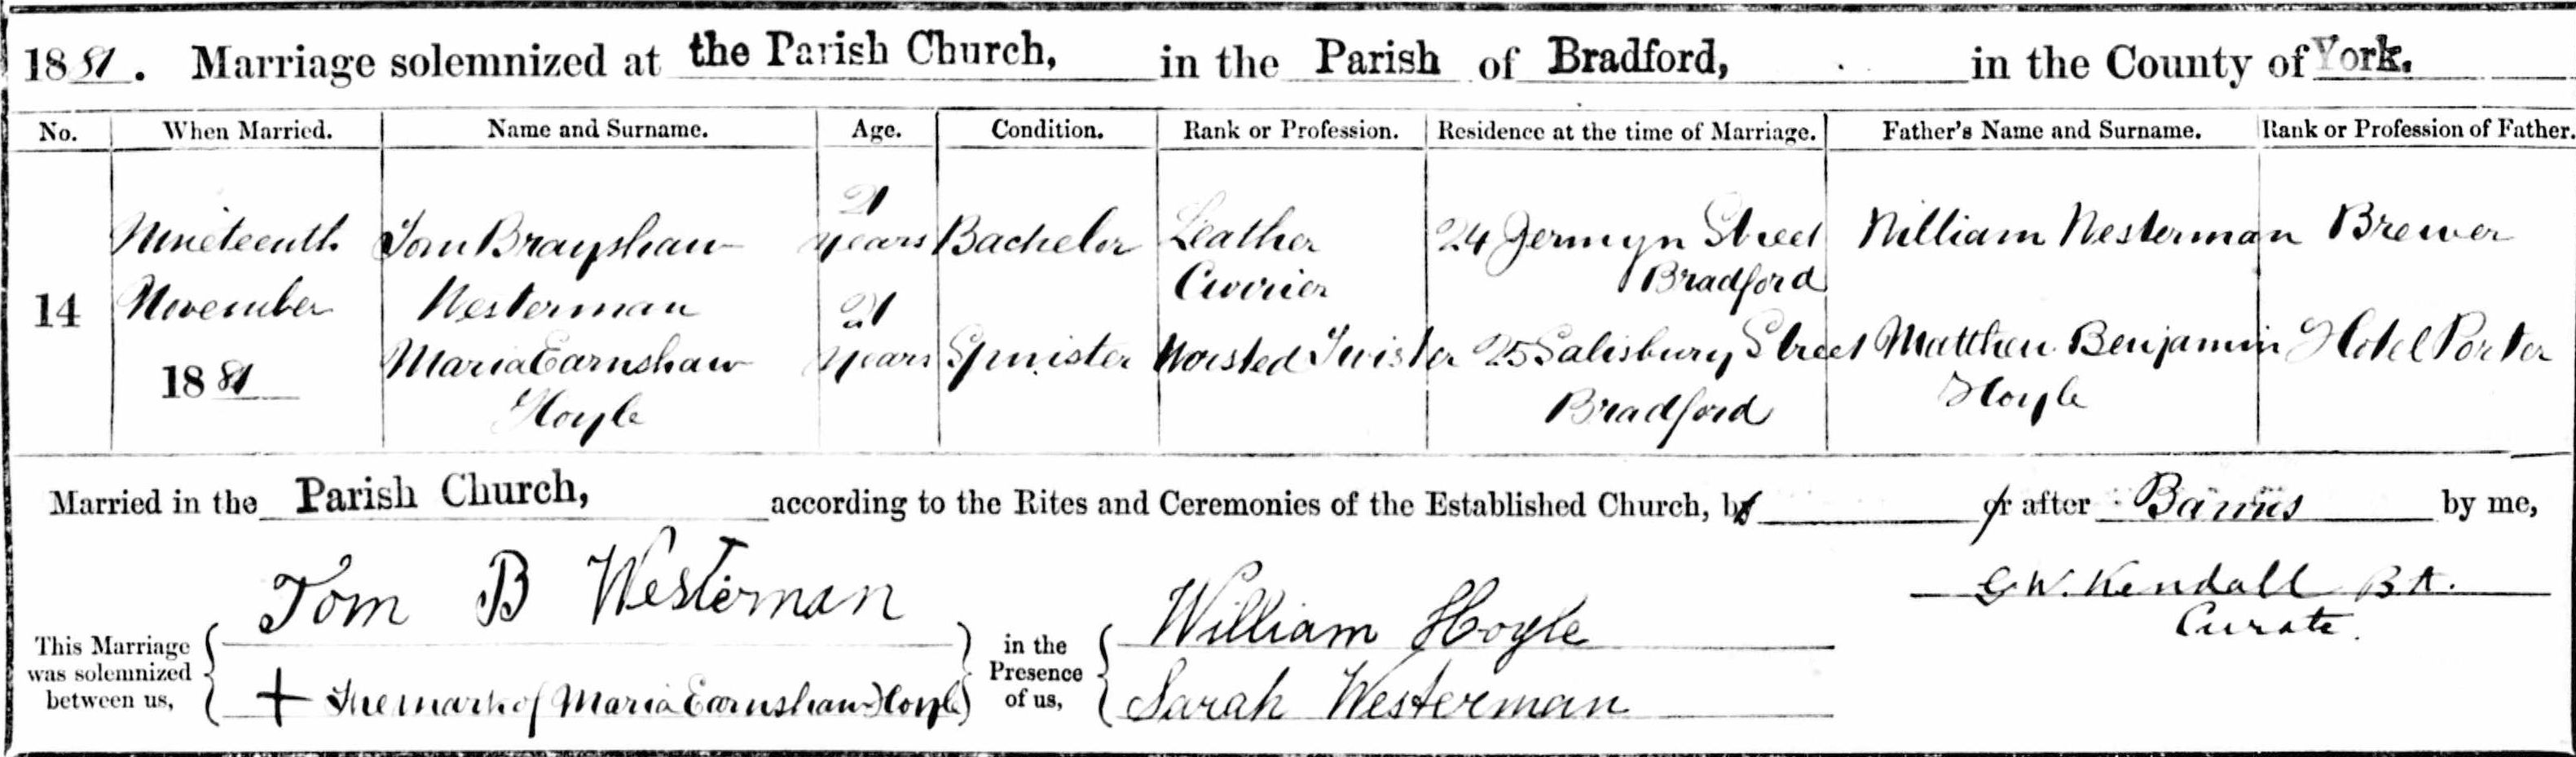 1881. Marriage solemnized at the Parish Church, in the Parish of Bradford, in the County of York.
No. When Married. Name and Surname. Age. Condition. Rank or Profession. Residence at the time of Marriage. Father's Name and Surname. Rank or Profession of Father.
21
Nineteenth Tom Brayshaw years Bachelor Leather 24 Jermyn Street William Westerman Brewer
Currier Bradford
14 November Westerman 21
Maria Earnshaw years Spinster Worsted Twister 25 Salisbury Street Matthew Benjamin Hotel Porter
1881 Hoyle Bradford Hoyle
Married in the Parish Church, according to the Rites and Ceremonies of the Established Church, by or after Banns by me,
Tom B Westerman G W. Kendall B A.
This Marriage was solemnized between us, in the Presence of us, William Hoyle Curate.
+ The mark of Maria Earnshaw Hoyle Sarah Westerman